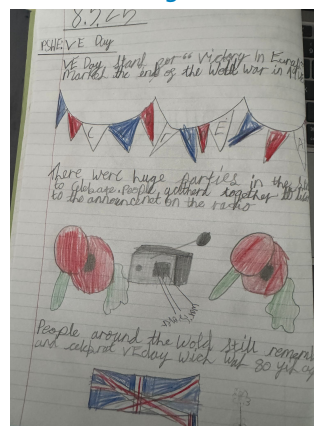 8.5.25
PSHE: VE Day
VE Day Stand for "Victory In Europ
Marked the end of the World war in
V E
There were huge parties in the
to celebrate. People gathered together to
to the announcment on the radio
People around the World Still remem
and celebrat VE day wich was 80 years